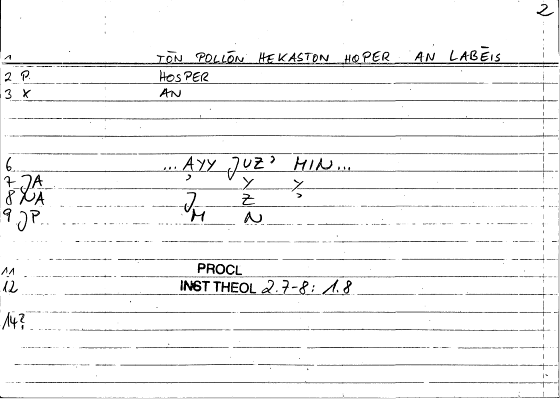 2
1 TŌN POLLŌN HEKASTON HOPER AN LABĒIS
2 P. HOSPER
3 X AN
6 ...ʾAYY JUZʾ MIN...
7 JA ʾ Y Y
8 NA J Z ʾ
9 JP M N
11 PROCL
12 INST THEOL 2.7-8: 1.8
14?